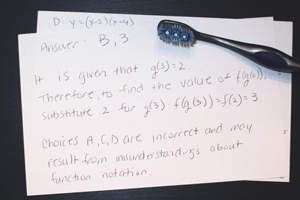 D. y=(x-2)(x-4)
Answer: B, 3
It is given that g(3)=2.
Therefore, to find the value of f(g(3)),
substitute 2 for g(3): f(g(3))=f(2)=3.
Choices A, C, D are incorrect and may
result from misunderstandings about
function notation.